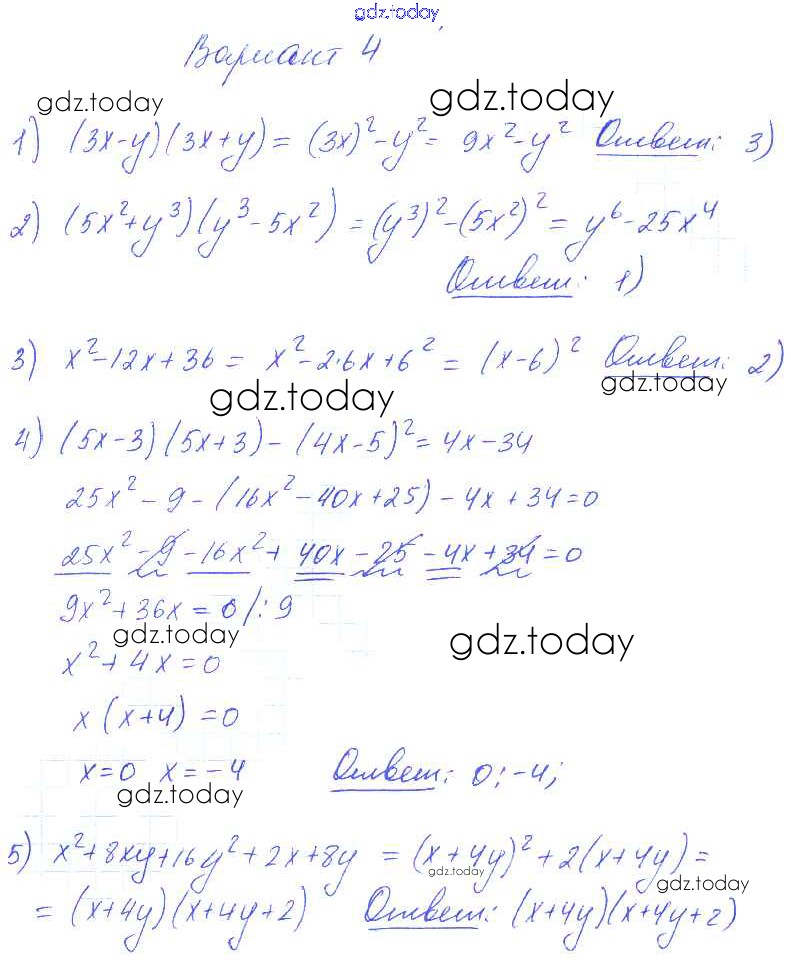 gdz.today
Вариант 4
gdz.today gdz.today
1) (3x-y)(3x+y) = (3x)²-y² = 9x²-y² Ответ: 3)
2) (5x²+y³)(y³-5x²) = (y³)²-(5x²)² = y⁶-25x⁴
Ответ: 1)
3) x²-12x+36 = x²-2·6x+6² = (x-6)² Ответ: 2)
gdz.today gdz.today
4) (5x-3)(5x+3)-(4x-5)² = 4x-34
25x²-9-(16x²-40x+25)-4x+34=0
25x²-9-16x²+40x-25-4x+34=0
9x²+36x=0 /:9
gdz.today gdz.today
x²+4x=0
x(x+4)=0
x=0 x=-4 Ответ: 0;-4;
gdz.today
5) x²+8xy+16y²+2x+8y = (x+4y)²+2(x+4y)=
gdz.today gdz.today
=(x+4y)(x+4y+2) Ответ: (x+4y)(x+4y+2)